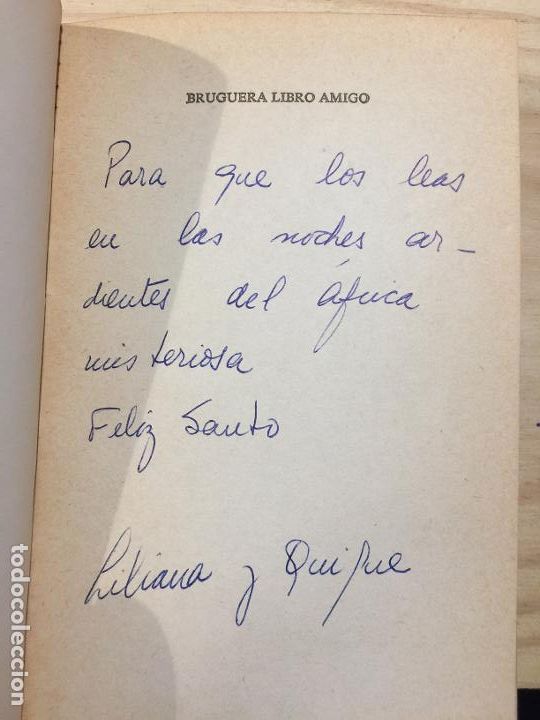 BRUGUERA LIBRO AMIGO
Para que los leas
en las noches ar_
dientes del áfrica
misteriosa
Feliz Santo
Liliana y Quique
todocoleccion